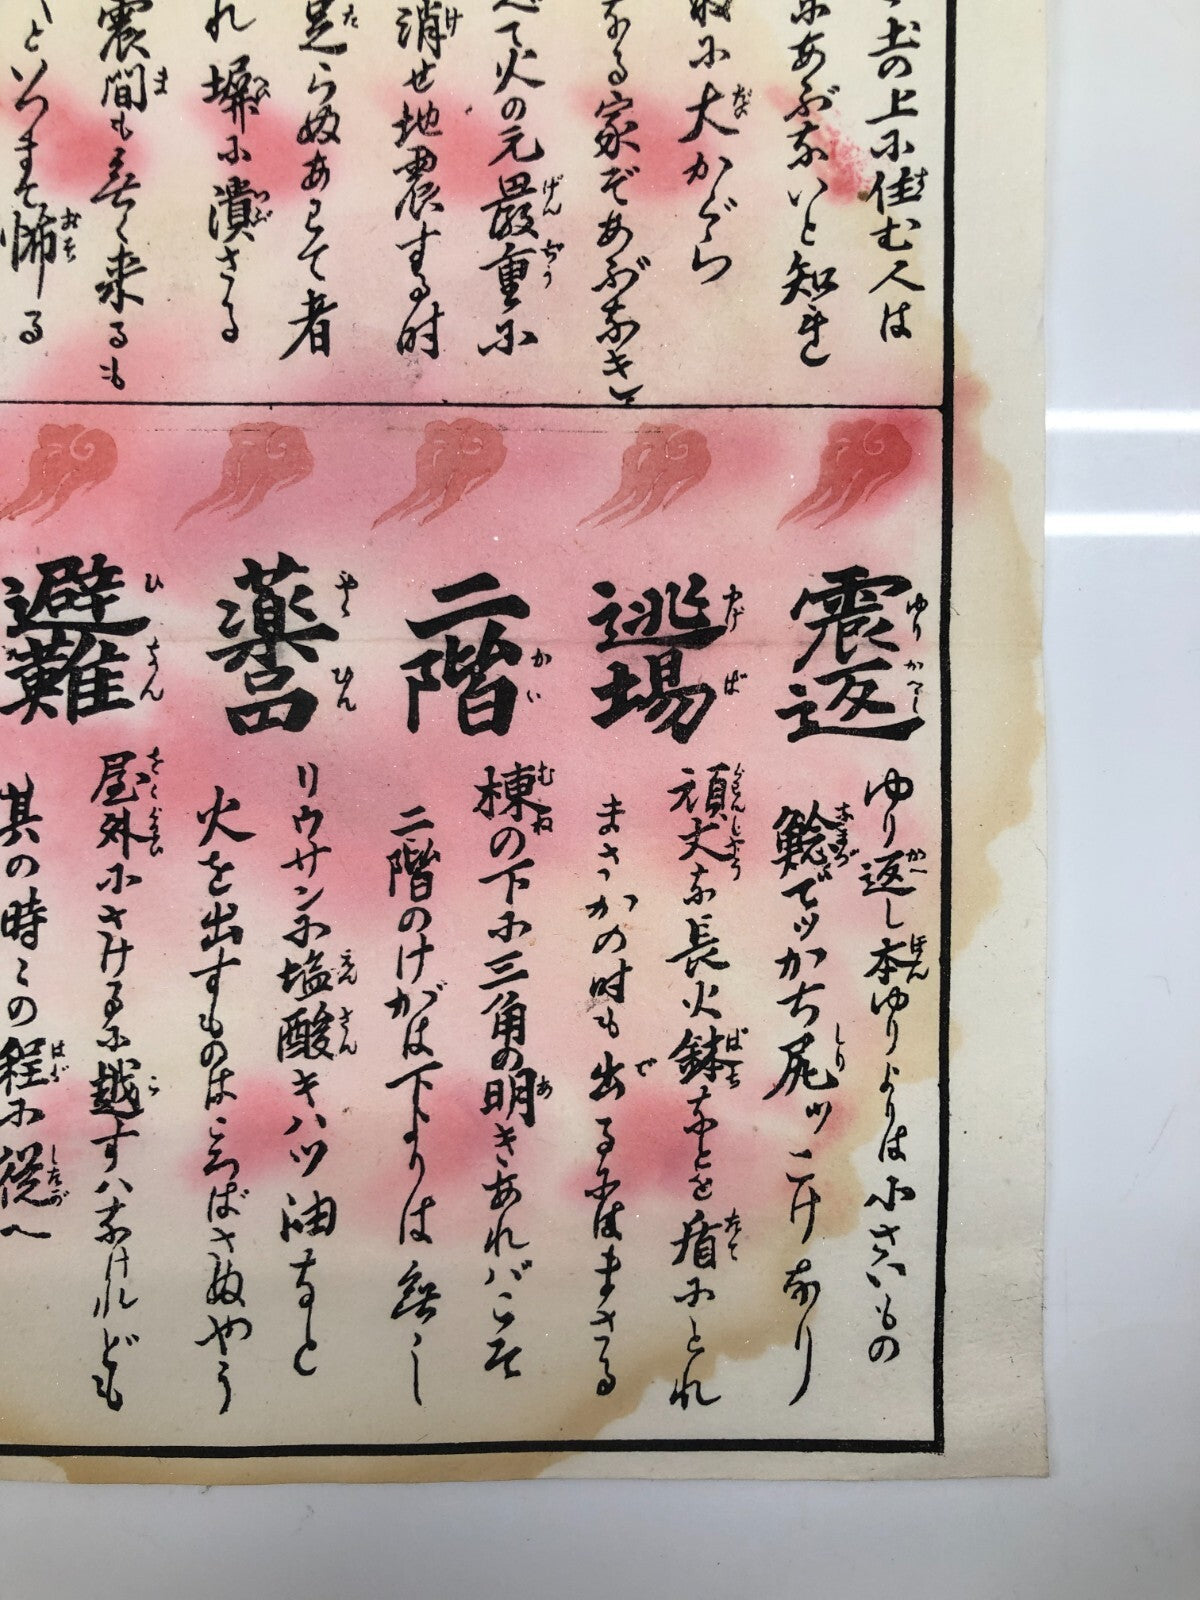 土の上に住む人は
にあぶないと知れ
に大かぐら
なる家ぞあぶなき
べて火の元嚴重に
消せ地震する時
足らぬあわて者
れ塀に潰さる
震間も無く来るも
といつまで怖る
震返
ゆり返し本ゆりよりは小さいもの
鯰でッかち尻ッこけなり
逃場
頑丈な長火鉢などを盾にとれ
まさかの時も出るにはまさる
二階
棟の下に三角の明きあればこそ
二階のけがは下よりは無し
薬品
リウサンに塩酸キハツ油など
火を出すものはころばさぬやう
避難
屋外にさけるに越すハなけれども
其の時〻の程に従へ